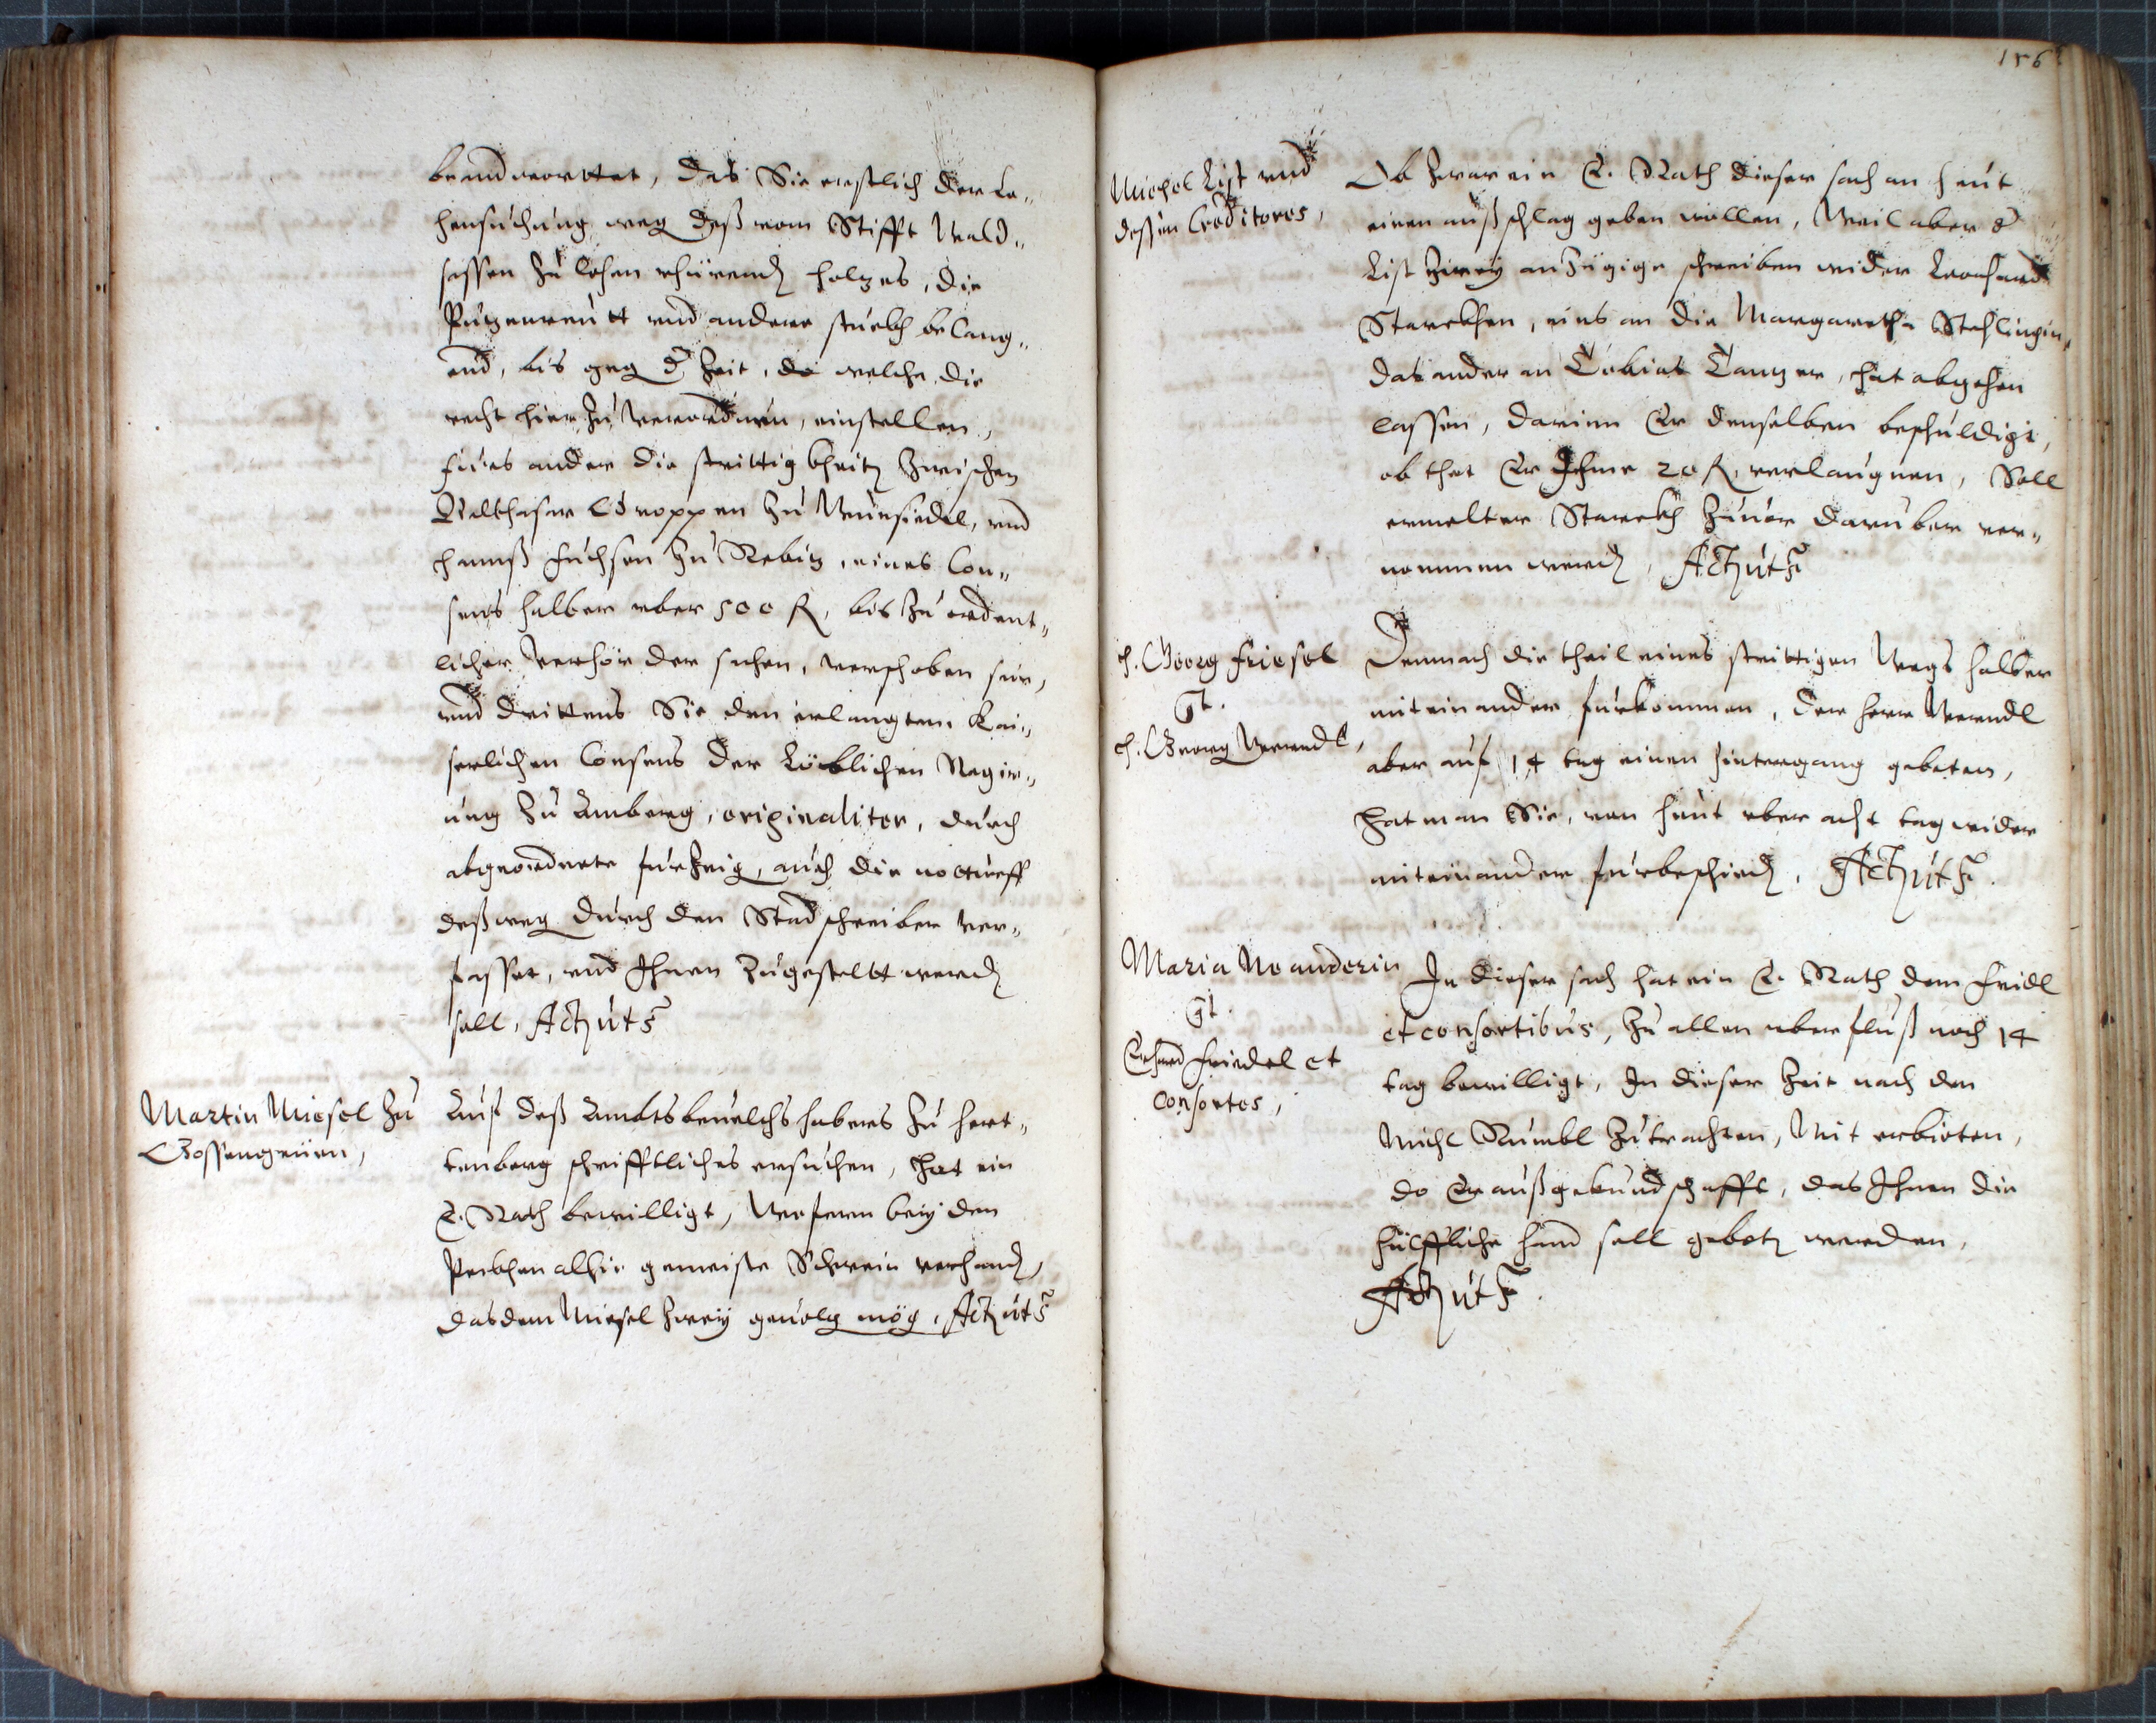 beandworttet, das Sie erstlich der Le„
hensuchung weg deß vom Stifft Wald„
sassen zu lehen rhürendn holzes, die
Puzenreütt vnd andere stuckh belang„
end, bis geg d. Zeit, do welche die
recht hierzu verordnen, einstellen,
fürs ander die strittigkheitn zwischen
Balthasar Groppen zu Wunsiedel, vnd
Hannß Fuchsen zu Rebitz, eines Con„
sens halber vber 500 fl, bis zu ordent„
licher Verhör der sachen, verschoben sein,
vnd drittens Sie den erlangten Kai„
serlichen Consens der Löblichen Regir„
ung zu Amberg, originaliter, durch
abgeordnete furzeig, auch die notturfft
deßweg durch den Stadschreiber ver„
fasset, vnd Ihnen zugestellt werdn
soll, Act ut s
Martin Miesel zu
Gossengrüen,
Auf deß Ambtsbeuelchshabers zu Hart„
tenberg schrifftliches ersuchen, hat ein
E. Rath bewilligt, Wofern bey den
Peckhen alhie gemeiste Schwein verhandn,
das dem Miesel zwey geuolg mög, Act ut s
156
Michel List vnd
dessen Creditores,
Ob zwar ein E. Rath dieser sach an heut
einen außschlag geben wollen, Weil aber d
List zwey anzügige schreiben wider Leonhard
Starckhen, eins an die Margaretha Stehlingin,
das ander an Tobias Tanzer, hat abgehen
lassen, darinn Er denselben beschuldigt,
ob thet Er Ihme 20 fl verlaugnen, Soll
ermelter Starckh zuuor daruber ver„
nommen werdn, Act ut s
H. Georg Friesel
Gt.
H. Georg Werndl,
Demnach die theil eines strittigen Wegs halber
miteinander furkommen, der Herr Werndl
aber auf 14 tag einen hintergang gebeten,
Hat man Sie, von heut vber acht tag wider
miteinander furbeschiedn, Act ut s.
Maria Neanderin
Gt.
Erhard Friedel et
Consortes,
In dieser sach hat ein E. Rath dem Fridl
et consortibus, zu allen vberfluß noch 14
tag bewilligt, In dieser Zeit nach den
Michl Rumbl zutrachten, Mit erbieten,
do Er außgekundschafft, das Ihnen die
hülffliche hand soll gebotn werden,
Act ut s.